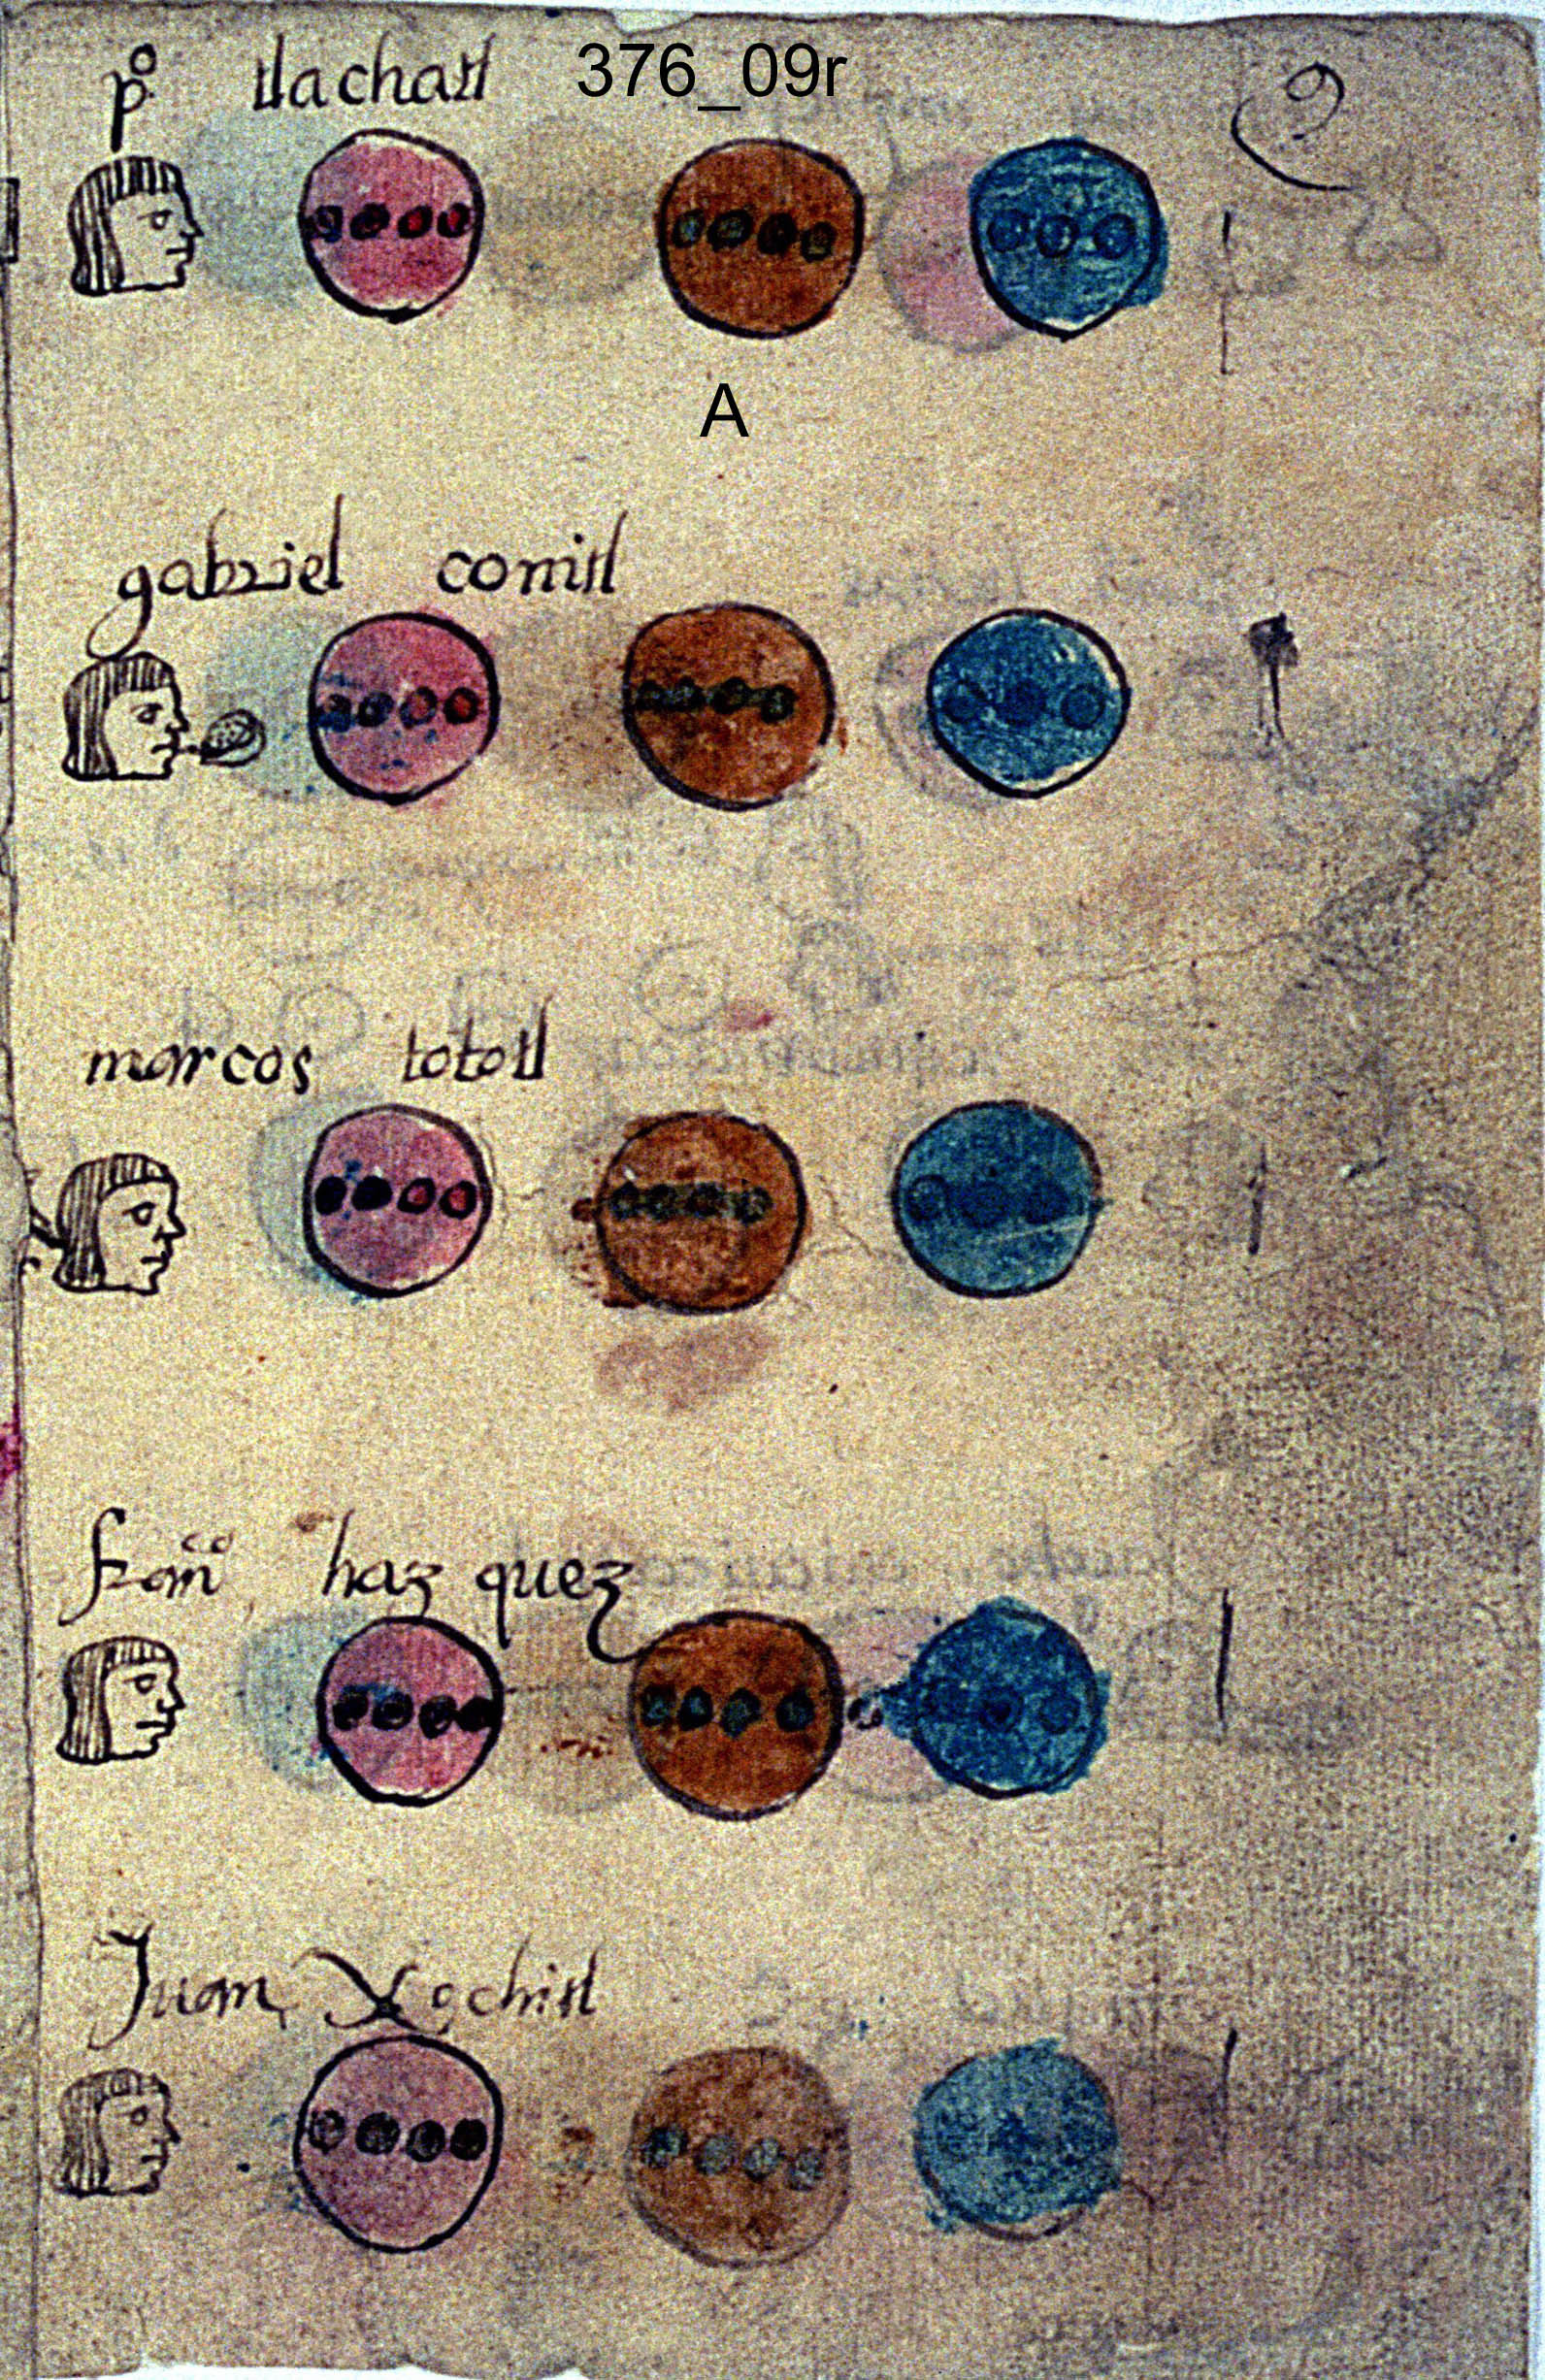 po tlachatl 376_09r 9
A
gabriel comitl
marcos tototl
franco hazquez
Juan Xochitl